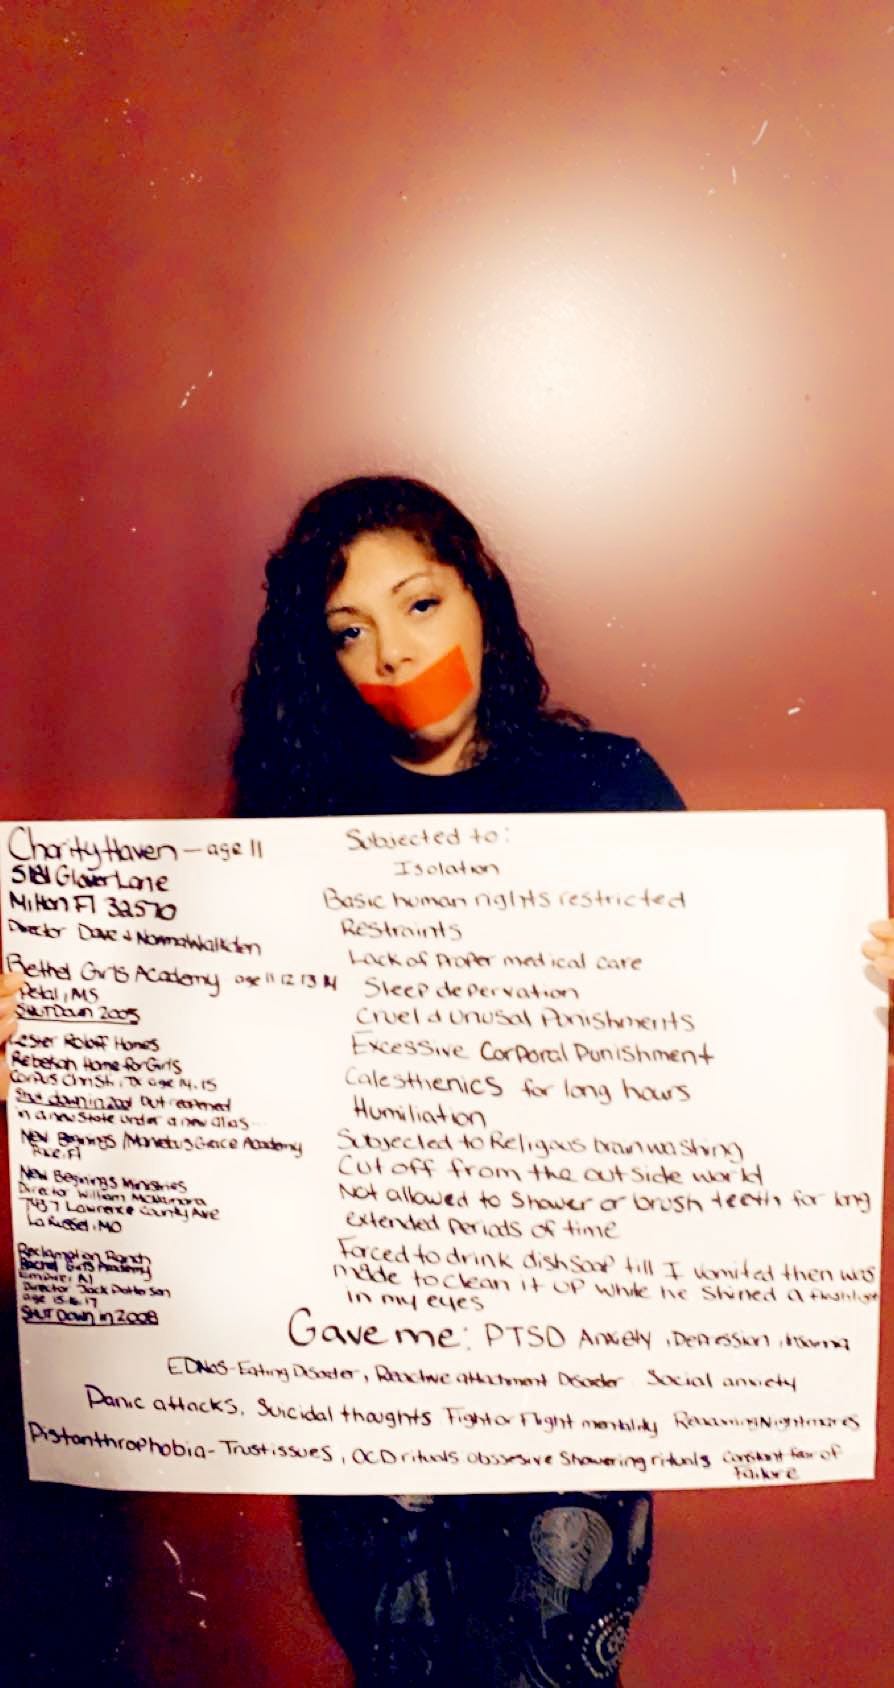 Charity Haven - age 11
5181 Glover Lane
Milton Fl 32570
Director Dave & Norma Walkden
Bethel Girls Academy age 11 12 13 14
Petal, MS
SHUT Down 2005
Lester Roloff Homes
Rebekah Home for Girls
Corpus Christi, Tx age 14, 15
Shut down in 2001 but reopened
in a new state under a new alias
New Beginnings / Marvelous Grace Academy
Pace, Fl
New Beginnings Ministries
Director William McNamara
7437 Lawrence County Ave
La Russel, MO
Reclamation Ranch
Rachel Girls Academy
Empire, Al
Director Jack Patterson
age 15 16 17
SHUT Down in 2008
Subjected to:
Isolation
Basic human rights restricted
Restraints
Lack of Proper medical care
Sleep depervation
Cruel & unusal Punishments
Excessive Corporal Punishment
Calesthenics for long hours
Humiliation
Subjected to Religous brainwashing
Cut off from the outside world
Not allowed to Shower or brush teeth for long
extended periods of time
Forced to drink dishsoap till I vomited then was
made to clean it up while he shined a flashlight
in my eyes
Gave me: PTSD Anxiety, Depression, trauma
EDNOS-Eating Disorder, Reactive attachment Disorder Social anxiety
Panic attacks, Suicidal thoughts Fight or Flight mentality Nightmares
Pistanthrophobia - Trust issues, OCD rituals obssesive Showering rituals Constant fear of
Failure